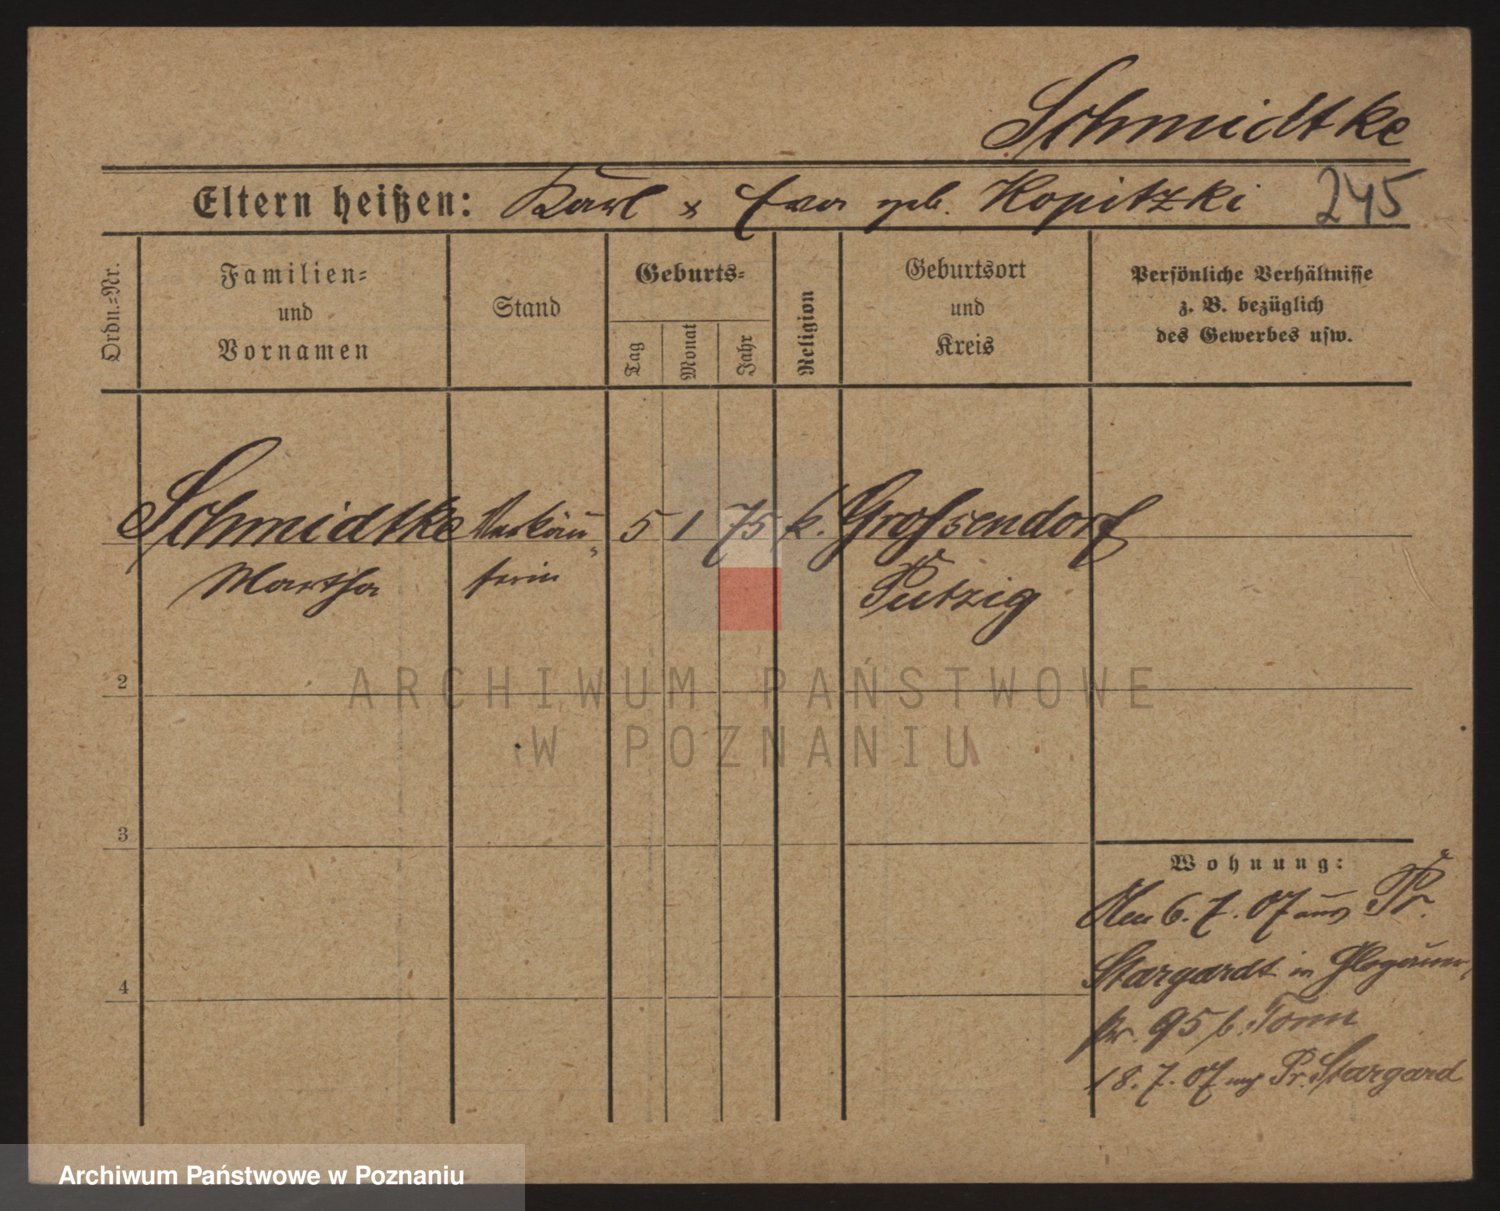 Schmidtke
Eltern heißen: Karl x Eva geb. Kopitzki 245
Ordn.=Nr.
Familien=
und
Vornamen
Stand
Geburts=
Tag
Monat
Jahr
Religion
Geburtsort
und
Kreis
Persönliche Verhältnisse
z. B. bezüglich
des Gewerbes usw.
Schmidtke Verkäu= 5 1 75 k. Grossendorf
Martha ferin Putzig
2
ARCHIWUM PAŃSTWOWE
W POZNANIU
3
Wohnung:
6.7.07 aus Pr.
Stargardt in Glogauer
str. 95 b. Tonn
4
18.7.07 Pr. Stargard
Archiwum Państwowe w Poznaniu